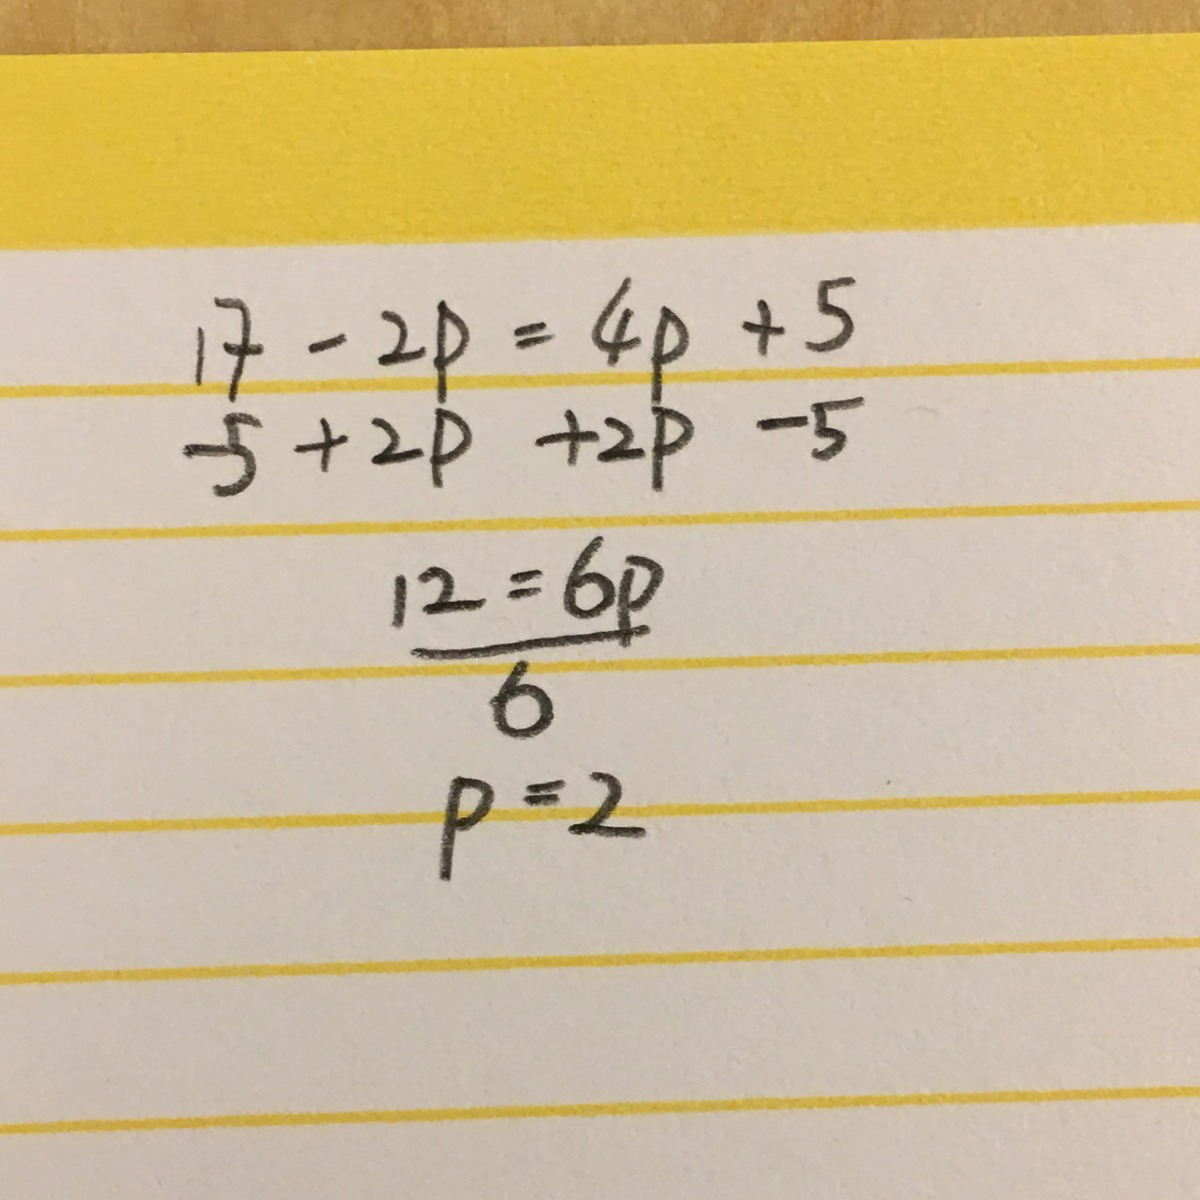 17 - 2p = 4p + 5
-5 + 2p +2p -5
12 = 6p
6
p = 2